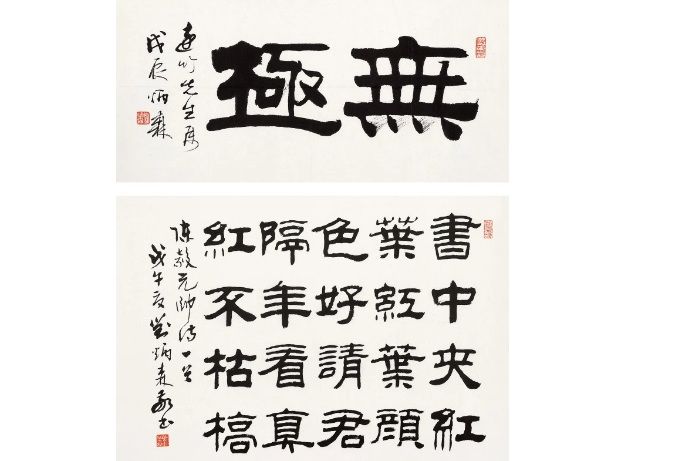 無極
竹先生屬
戊辰炳森
書中夾紅
葉紅葉顏
色好請君
隔年看真
紅不枯槁
陳毅元帥詩一首
戊午夏劉炳森敬書